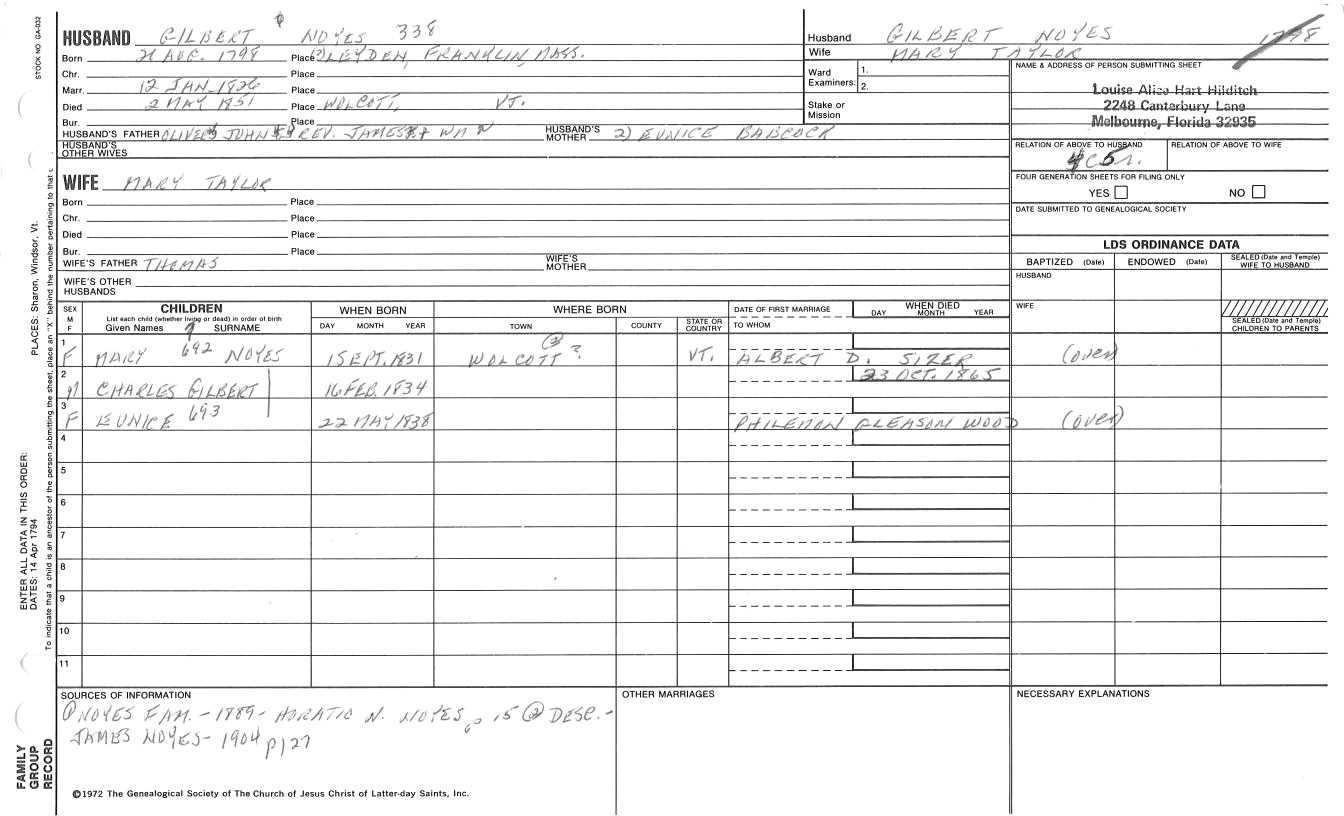 STOCK NO. GA-032
HUSBAND GILBERT NOYES 338
Born 21 AUG. 1798 Place LEYDEN, FRANKLIN, MASS.
Chr. Place
Marr. 12 JAN. 1826 Place
Died 2 MAY 1851 Place WOLCOTT, VT.
Bur. Place
HUSBAND'S FATHER OLIVER JOHN REV. JAMES WM HUSBAND'S MOTHER 2) EUNICE BABCOCK
HUSBAND'S OTHER WIVES
WIFE MARY TAYLOR
Born Place
Chr. Place
Died Place
Bur. Place
WIFE'S FATHER THOMAS WIFE'S MOTHER
WIFE'S OTHER HUSBANDS
Husband GILBERT NOYES 1798
Wife MARY TAYLOR
Ward Examiners: 1. 2.
Stake or Mission
NAME & ADDRESS OF PERSON SUBMITTING SHEET
Louise Alice Hart Hilditch
2248 Canterbury Lane
Melbourne, Florida 32935
RELATION OF ABOVE TO HUSBAND RELATION OF ABOVE TO WIFE
FOUR GENERATION SHEETS FOR FILING ONLY
YES NO
DATE SUBMITTED TO GENEALOGICAL SOCIETY
LDS ORDINANCE DATA
BAPTIZED (Date) ENDOWED (Date) SEALED (Date and Temple) WIFE TO HUSBAND
HUSBAND
WIFE
SEALED (Date and Temple) CHILDREN TO PARENTS
SEX M F CHILDREN List each child (whether living or dead) in order of birth Given Names SURNAME WHEN BORN DAY MONTH YEAR WHERE BORN TOWN COUNTY STATE OR COUNTRY DATE OF FIRST MARRIAGE TO WHOM WHEN DIED DAY MONTH YEAR
1 F MARY 692 NOYES 1 SEPT. 1831 WOLCOTT ② ? VT. ALBERT D. SIZER (over)
2 M CHARLES GILBERT 16 FEB. 1834 23 OCT. 1865
3 F EUNICE 693 22 MAY 1838 PHILEMON GLEASON WOOD (over)
4
5
6
7
8
9
10
11
SOURCES OF INFORMATION
① NOYES FAM. - 1889 - HORATIO N. NOYES, p 15 ② DESC. -
JAMES NOYES - 1904 p 127
OTHER MARRIAGES
NECESSARY EXPLANATIONS
©1972 The Genealogical Society of The Church of Jesus Christ of Latter-day Saints, Inc.
FAMILY GROUP RECORD
ENTER ALL DATA IN THIS ORDER:
DATES: 14 Apr 1794
PLACES: Sharon, Windsor, Vt.
To indicate that a child is an ancestor of the person submitting the sheet, place an "X" behind the number pertaining to that c